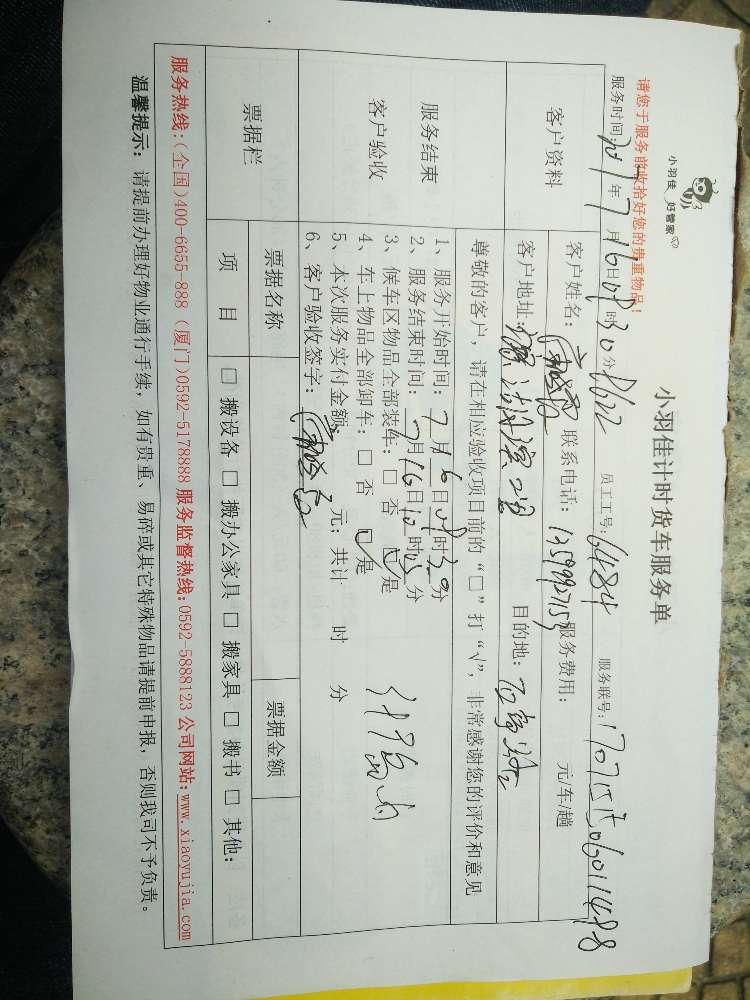 小羽佳 好管家
小羽佳计时货车服务单
请您于服务前收拾好您的贵重物品！
服务时间：2017年7月16日08时30分 员工工号：6484 服务联号：
客户资料
客户姓名： 联系电话： 服务费用： 元/车/趟
客户地址： 目的地：
尊敬的客户，请在相应验收项目前的“□”打“√”，非常感谢您的评价和意见
服务结束
客户验收
1、服务开始时间：7月16日08时30分
2、服务结束时间：7月16日10时05分
3、候车区物品全部装车：□ 否 ☑是
4、车上物品全部卸车：□ 否 ☑是
5、本次服务实付金额： 元；共计 时 分
6、客户验收签字：
票据栏
票据名称 票据金额
项目 □ 搬设备 □ 搬办公家具 □ 搬家具 □ 搬书 □ 其他：
服务热线：(全国)400-6655-888 (厦门)0592-5178888 服务监督热线：0592-5888123 公司网站：www.xiaoyujia.com
温馨提示：请提前办理好物业通行手续，如有贵重、易碎或其它特殊物品请提前申报，否则我司不予负责。